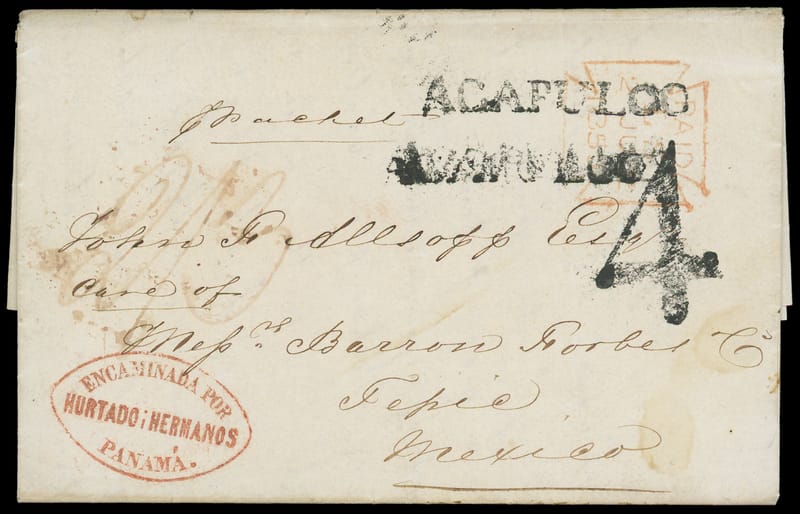 ACAPULCO
Packet
ACAPULCO
PAID
4
2/3
John F. Allsopp Esq
care of
Messrs Barron Forbes Co
Tepic
Mexico
ENCAMINADA POR
HURTADO i HERMANOS
PANAMÁ.